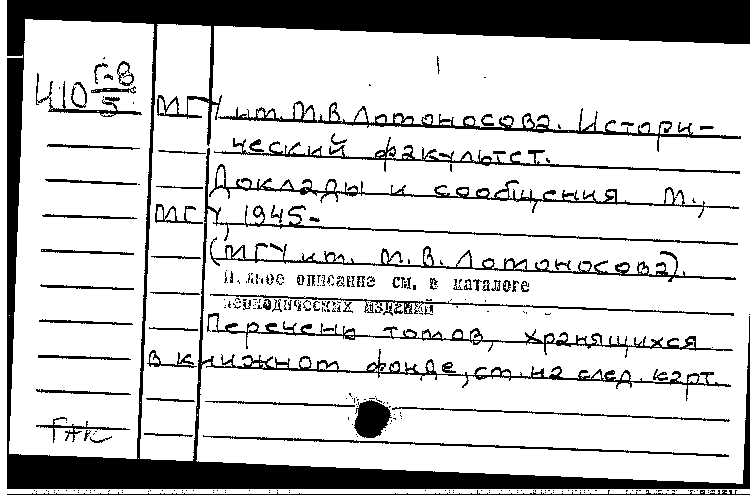 Ч10 Г-В/5
МГУ им. М.В. Ломоносова. Истори-
ческий факультет.
Доклады и сообщения. М.,
МГУ, 1945-
(МГУ им. М.В. Ломоносова).
Полное описание см. в каталоге
периодических изданий
Перечень томов, хранящихся
в книжном фонде, см. на след. карт.
ГАК